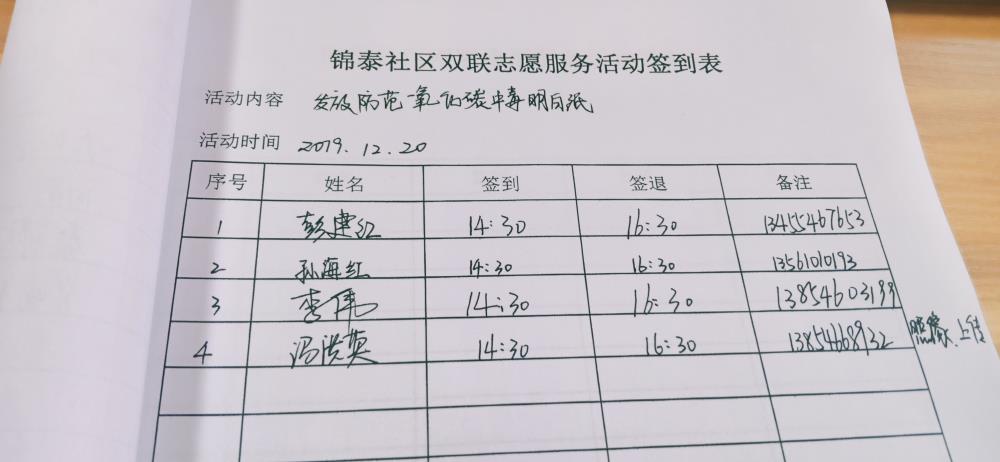 锦泰社区双联志愿服务活动签到表
活动内容 发放防范一氧化碳中毒明白纸
活动时间 2019.12.20
序号 姓名 签到 签退 备注
1 彭建红 14:30 16:30 13455467653
2 孙海红 14:30 16:30 13561010193
3 李伟 14:30 16:30 13854603199
4 冯洪英 14:30 16:30 13854668932 上传